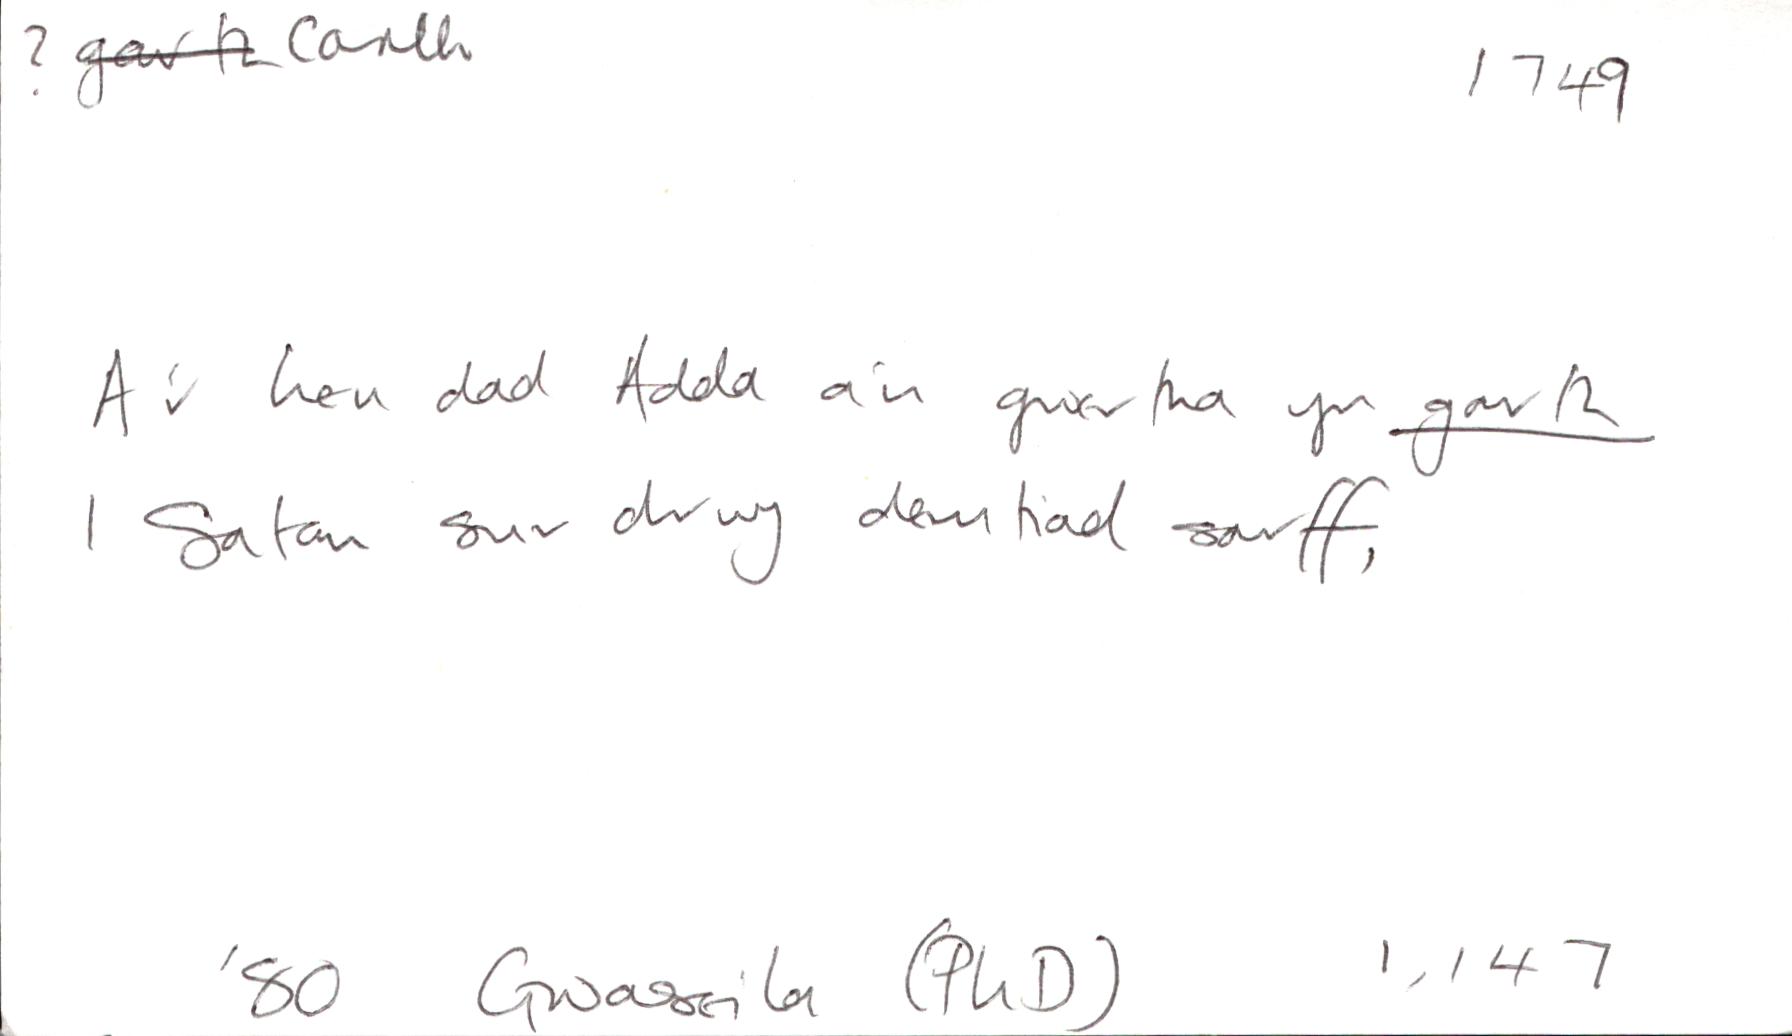 ? garth Carllh 1749
A'r hen dad Adda a'n gwertha yn garth
I Satan sur drwy demtiad sarff,
'80 Gwasseila (PhD) 1,147